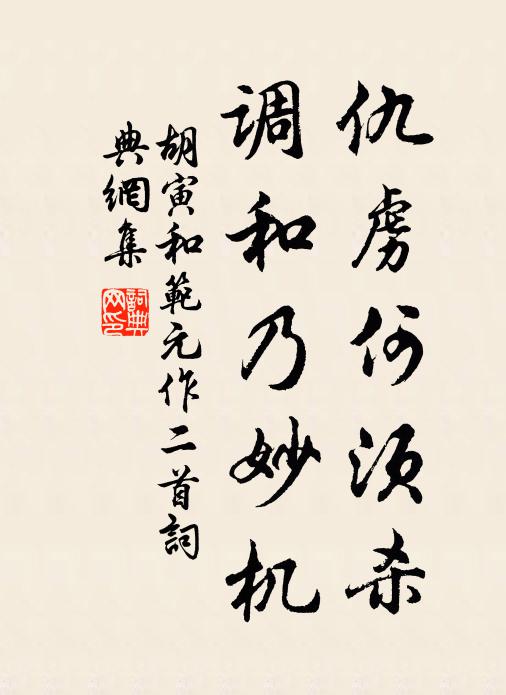 仇虏何须杀
调和乃妙机
胡寅和範元作二首詞
典網集
詞典网印